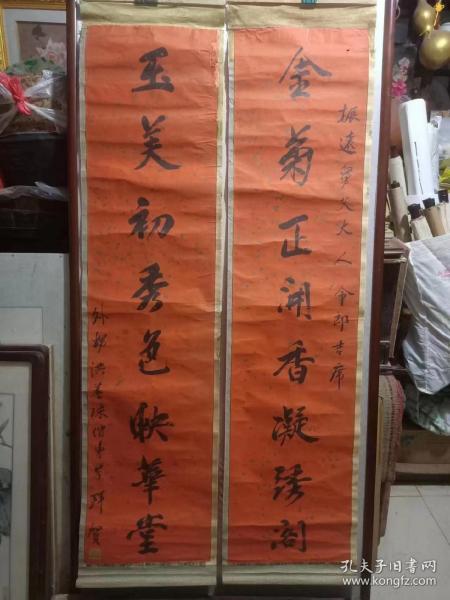 振遠舅父大人令郎吉席
金菊正開香凝琇閣
玉芙初秀色映華堂
孔夫子旧书网
www.kongfz.com